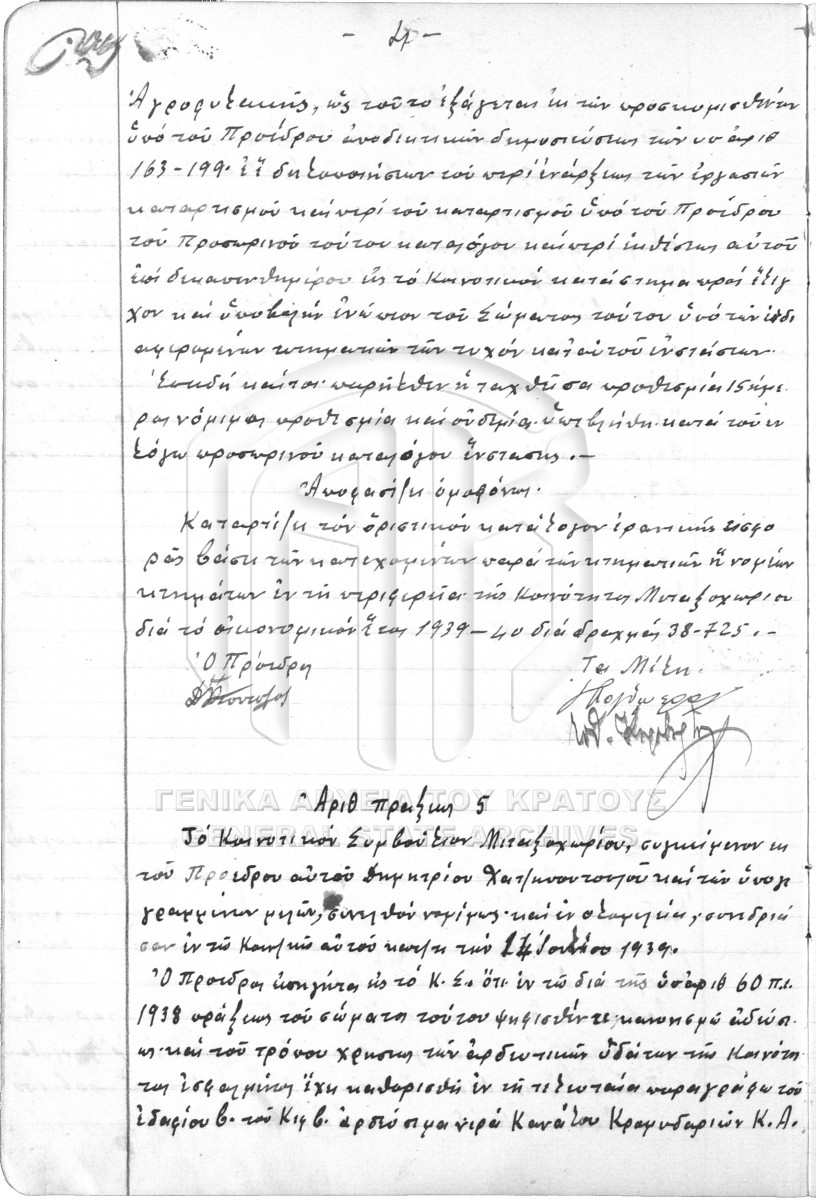 - 4 -
Ἀγροφυλακῆς, ὡς τοῦτο ἐξάγεται ἐκ τῶν προσκομισθέντων
ὑπό τοῦ Προέδρου ἀποδεικτικῶν δημοσιεύσεως τῶν ὑπ' ἀριθ
163-199. εἰδοποιήσεων τοῦ περί ἐνάρξεως τῶν ἐργασιῶν
καταρτισμοῦ καί περί τοῦ καταρτισμοῦ ὑπό τοῦ Προέδρου
τοῦ Προσωρινοῦ τούτου καταλόγου καί περί ἐκθέσεως αὐτοῦ
ἐπί δεκαπενθημέρου εἰς τό Κοινοτικόν κατάστημα πρός ἔλεγ
χον καί ὑποβολήν ἐνώπιον τοῦ Σώματος τούτου ὑπό τῶν ἐνδι
αφερομένων κτηματιῶν τῶν τυχόν κατ' αὐτοῦ ἐνστάσεων.
Ἐπειδή καίτοι παρῆλθεν ἡ ταχθεῖσα προθεσμία 15 ἡμέ
ρας νόμιμος προθεσμία καί οὐδεμία ὑπεβλήθη κατά τοῦ ἐν
λόγω προσωρινοῦ καταλόγου ἔνστασις.-
Ἀποφασίζει ὁμοφώνως.
Καταρτίζει τόν ὁριστικόν κατάλογον ἐρανικῆς εἰσφο
ρᾶς βάσει τῶν κατεχομένων παρά τῶν κτηματιῶν ἤ νομέων
κτημάτων ἐν τῇ περιφερείᾳ τῆς Κοινότητος Μεταξοχωρίου
διά τό οἰκονομικόν ἔτος 1939-40 διά δραχμάς 38-725.-
Ὁ Πρόεδρος Τα Μέλη.
ΓΕΝΙΚΑ ΑΡΧΕΙΑ ΤΟΥ ΚΡΑΤΟΥΣ
Ἀριθ πράξεως 5
GENERAL STATE ARCHIVES
Τό Κοινοτικον Συμβούλιον Μεταξοχωρίου, συγκείμενον ἐκ
τοῦ Προέδρου αὐτοῦ Δημητρίου Χατζηκοντουλοῦ καί τῶν ὑπογε
γραμμένων μελῶν, συνελθόν νομίμως καί ἐν ὁλομελείᾳ, συνεδριά
σαν ἐν τῶ Κοιν/κῶ αὐτοῦ κατ/τι τήν 14 Ἰουνίου 1939.
Ὁ Πρόεδρος εἰσηγεῖται εἰς τό Κ.Σ. ὅτι ἐν τῶ διά τῆς ὑπ' ἀριθ 60 π.ε.
1938 πράξεως τοῦ σώματος τούτου ψηφισθέντι κανονισμῶ ἀδεύσε
ως καί τοῦ τρόπου χρήσεως τῶν ἀρδευτικῶν ὑδάτων τῆς Κοινότη
τος ἐσφαλμένως ἔχει καθορισθῆ ἐν τῇ τελευταίᾳ παραγράφω τοῦ
ἐδαφίου β. τοῦ Κεφ β. ἀρδεύσιμα νερά Κανάλου Κραμυδαριῶν Κ.Α.